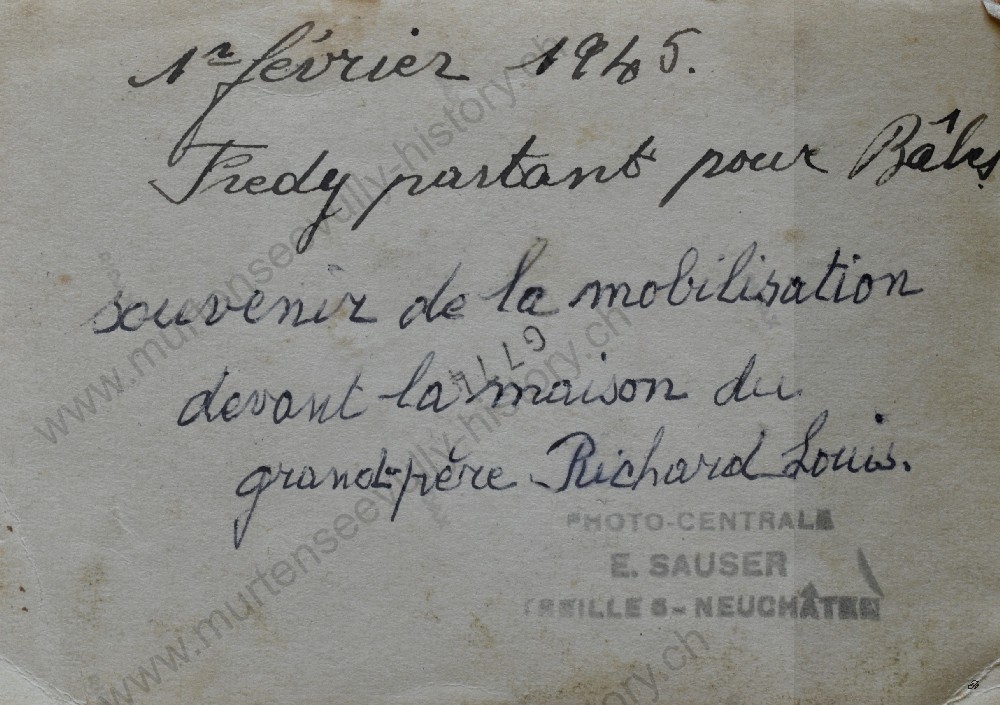 1er février 1945.
Fredy partant pour Bâle,
souvenir de la mobilisation
devant la maison du
grand-père Richard Louis.
PHOTO-CENTRALE
E. SAUSER
TREILLE 6 - NEUCHÂTEL
www.murtenseevully-history.ch
www.murtenseevully-history.ch